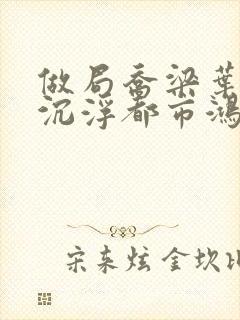 做局乔梁葉
沉浮都市鴻
宋来炫金坎比